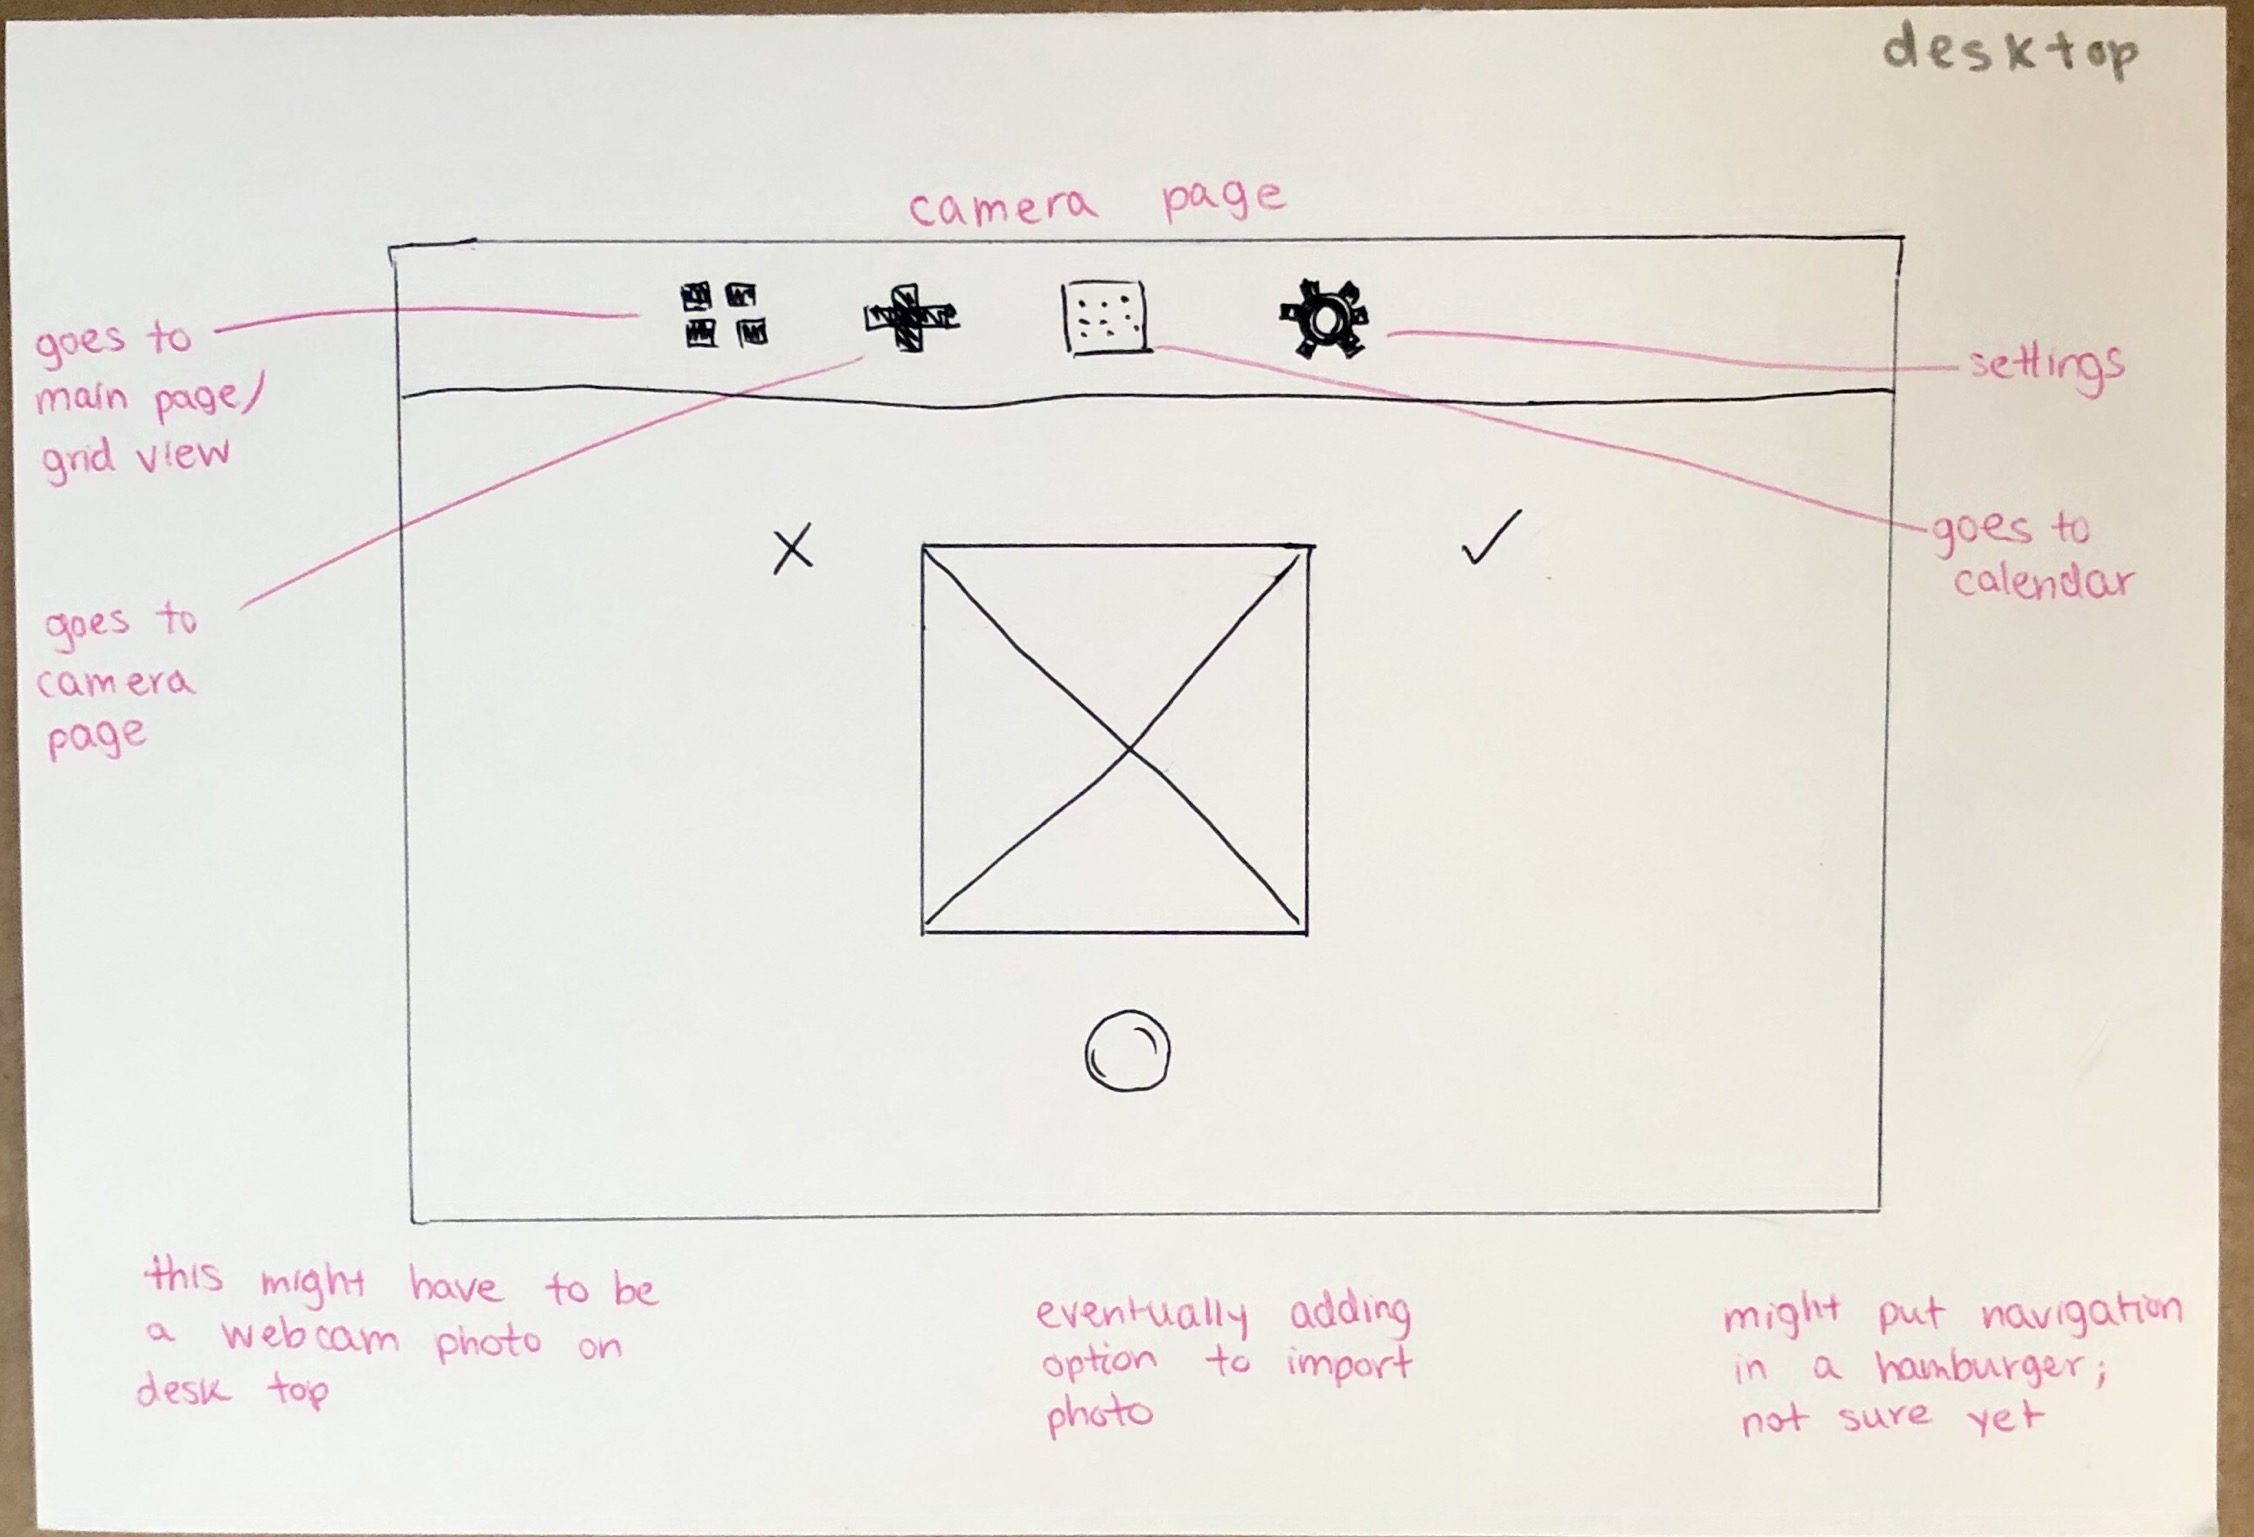 desktop
camera page
goes to
main page/
grid view
settings
goes to
calendar
goes to
camera
page
this might have to be
a webcam photo on
desk top
eventually adding
option to import
photo
might put navigation
in a hamburger;
not sure yet